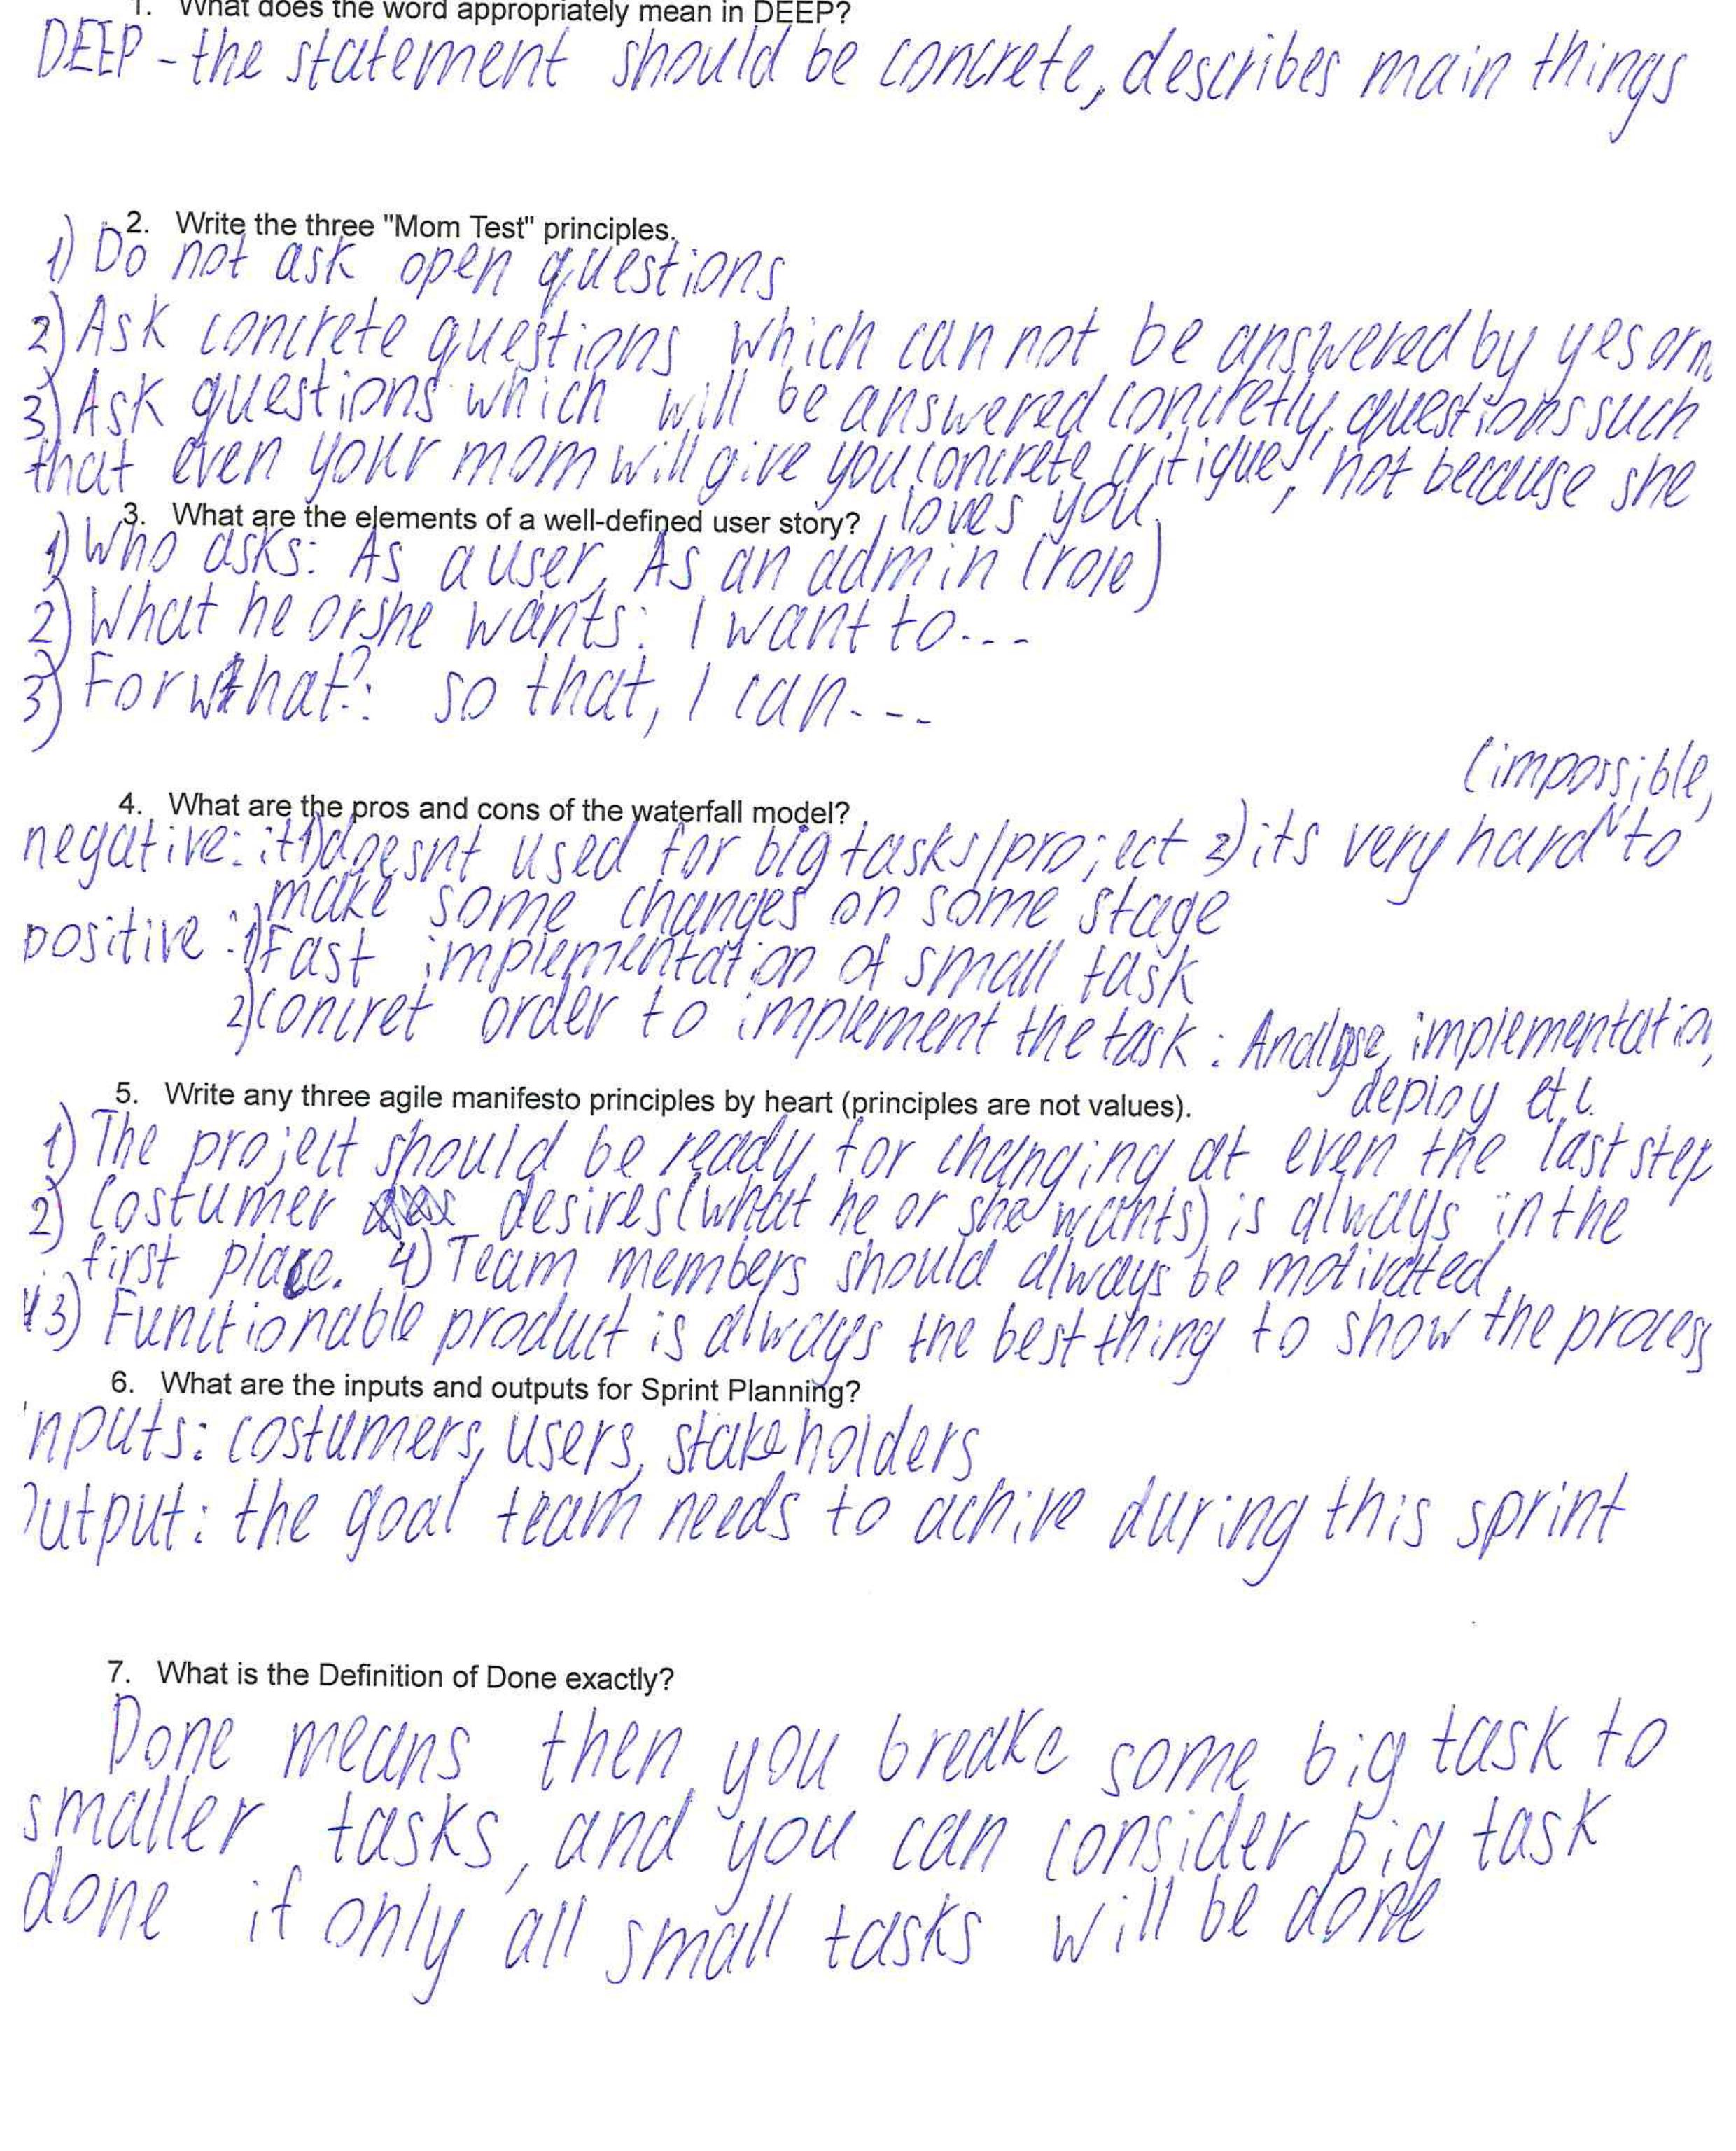 1. What does the word appropriately mean in DEEP?
DEEP - the statement should be concrete, describes main things
2. Write the three "Mom Test" principles.
1) Do not ask open questions
2) Ask concrete questions which can not be answered by yes or n
3) Ask questions which will be answered concretly, questions such
that even your mom will give you concrete critique, not because she
loves you.
3. What are the elements of a well-defined user story?
1) Who asks: As a user, As an admin (role)
2) What he or she wants: I want to...
3) For what?: so that, I can...
4. What are the pros and cons of the waterfall model?
(impossible,
negative: it 1) doesnt used for big tasks/project 2) its very hard to
make some changes on some stage
positive: 1) Fast implementation of small task
2) concret order to implement the task: Analyse, implementation,
deploy etc.
5. Write any three agile manifesto principles by heart (principles are not values).
1) The project should be ready for changing at even the last step
2) Costumer desires (what he or she wants) is always in the
first place. 4) Team members should always be motivated
3) Functionable product is always the best thing to show the process
6. What are the inputs and outputs for Sprint Planning?
nputs: costumers, users, stakeholders
Output: the goal team needs to achive during this sprint
7. What is the Definition of Done exactly?
Done means then you breake some big task to
smaller tasks, and you can consider big task
done if only all small tasks will be done